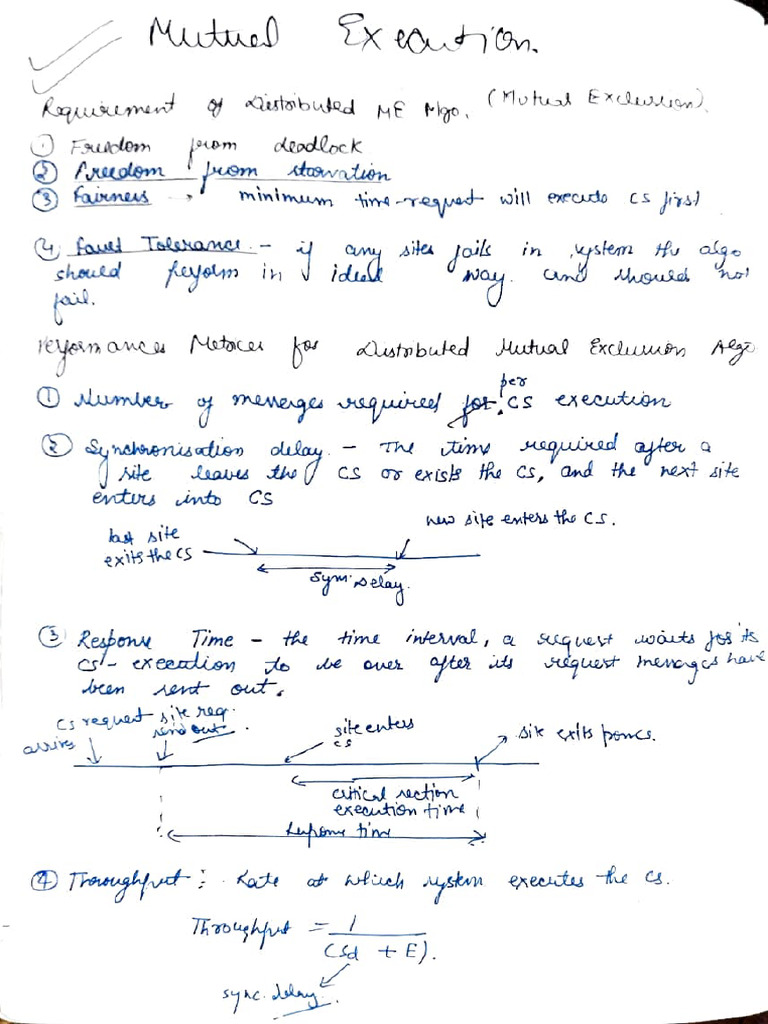 Mutual Execution.
Requirement of Distributed ME Algo. (Mutual Exclusion).
① Freedom from deadlock
② Freedom from starvation
③ Fairness → minimum time-request will execute CS first
④ Fault Tolerance - if any sites fails in system the algo
should perform in ideal way. and should not
fail.
Performances Metrices for Distributed Mutual Exclusion Algo
① Number of messages required per CS execution
② Synchronisation delay. - The time required after a
site leaves the CS or exists the CS, and the next site
enters into CS
last site
exits the CS
new site enters the CS.
Sym. Delay.
③ Response Time - the time interval, a request waits for its
CS-execution to be over after its request messages have
been sent out.
CS request
arrives
site req.
send out.
site enters
CS
site exits from CS.
critical section
execution time
response time
④ Throughput : Rate at which system executes the CS.
Throughput = 1 / (Sd + E).
sync. delay.